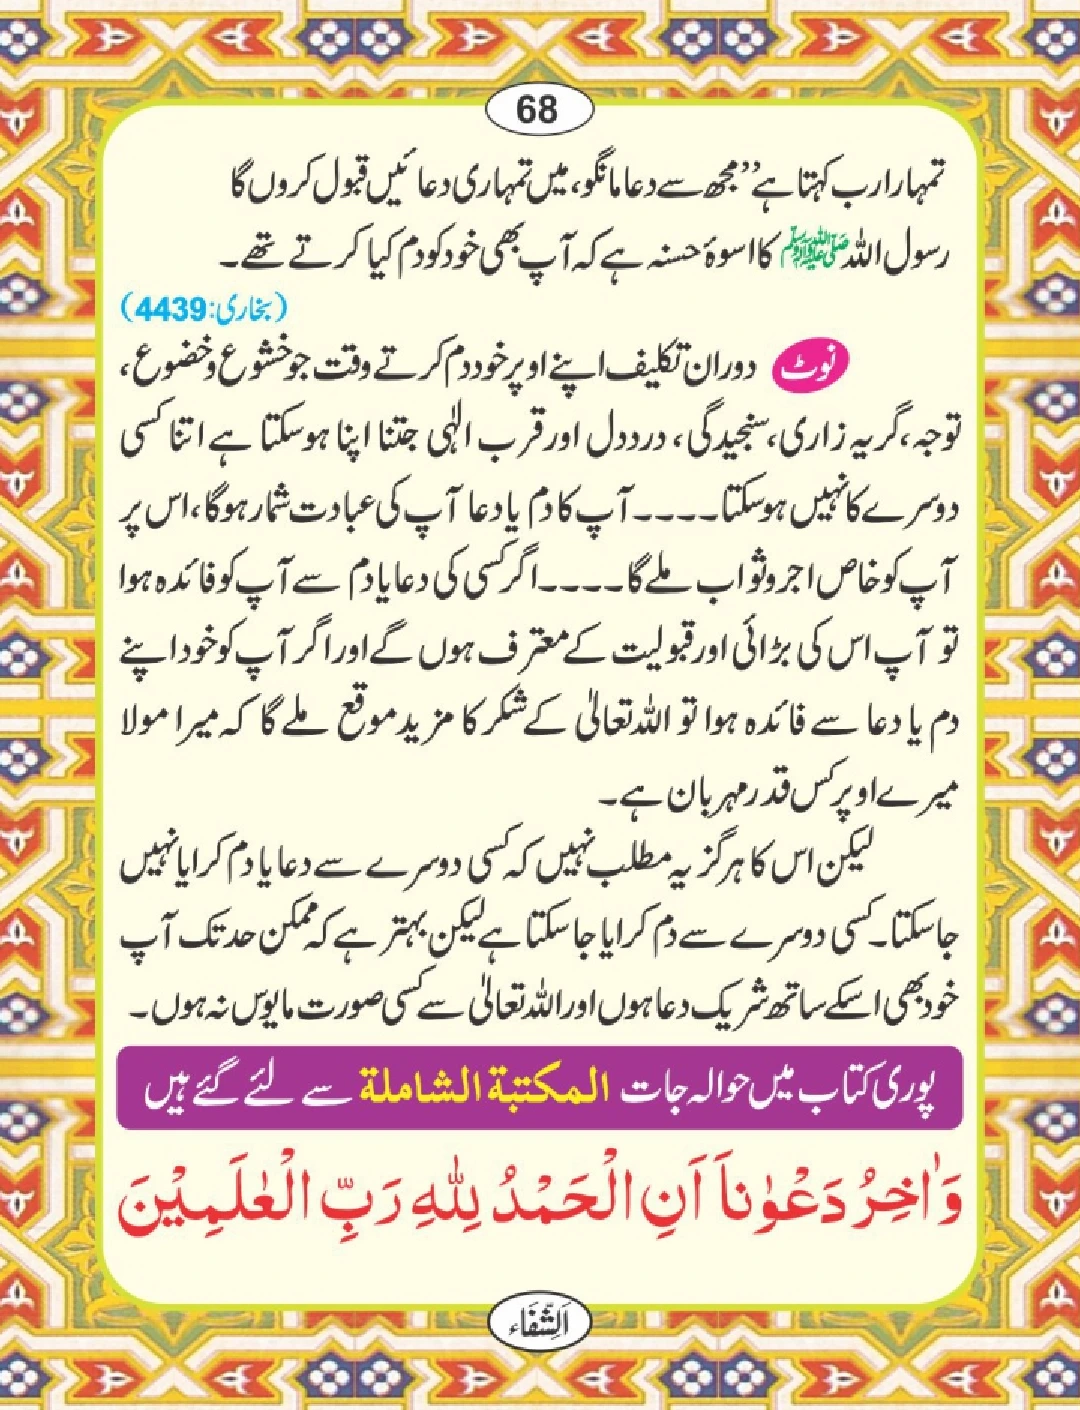 68
تمہارا رب کہتا ہے ”مجھ سے دعا مانگو، میں تمہاری دعائیں قبول کروں گا
رسول اللہ ﷺ کا اسوۂ حسنہ ہے کہ آپ بھی خود کو دم کیا کرتے تھے۔
(بخاری: 4439)
نوٹ دوران تکلیف اپنے اوپر خود دم کرتے وقت جو خشوع و خضوع،
توجہ، گریہ زاری، سنجیدگی، درد دل اور قرب الٰہی جتنا اپنا ہو سکتا ہے اتنا کسی
دوسرے کا نہیں ہو سکتا۔۔۔۔ آپ کا دم یا دعا آپ کی عبادت شمار ہوگا، اس پر
آپ کو خاص اجر و ثواب ملے گا۔۔۔۔ اگر کسی کی دعا یا دم سے آپ کو فائدہ ہوا
تو آپ اس کی بڑائی اور قبولیت کے معترف ہوں گے اور اگر آپ کو خود اپنے
دم یا دعا سے فائدہ ہوا تو اللہ تعالیٰ کے شکر کا مزید موقع ملے گا کہ میرا مولا
میرے اوپر کس قدر مہربان ہے۔
لیکن اس کا ہرگز یہ مطلب نہیں کہ کسی دوسرے سے دعا یا دم کرایا نہیں
جا سکتا۔ کسی دوسرے سے دم کرایا جا سکتا ہے لیکن بہتر ہے کہ ممکن حد تک آپ
خود بھی اسکے ساتھ شریک دعا ہوں اور اللہ تعالیٰ سے کسی صورت مایوس نہ ہوں۔
پوری کتاب میں حوالہ جات المکتبة الشاملة سے لئے گئے ہیں
وَاٰخِرُ دَعْوٰنَا اَنِ الْحَمْدُ لِلّٰهِ رَبِّ الْعٰلَمِيْنَ
اَلشِّفَاء